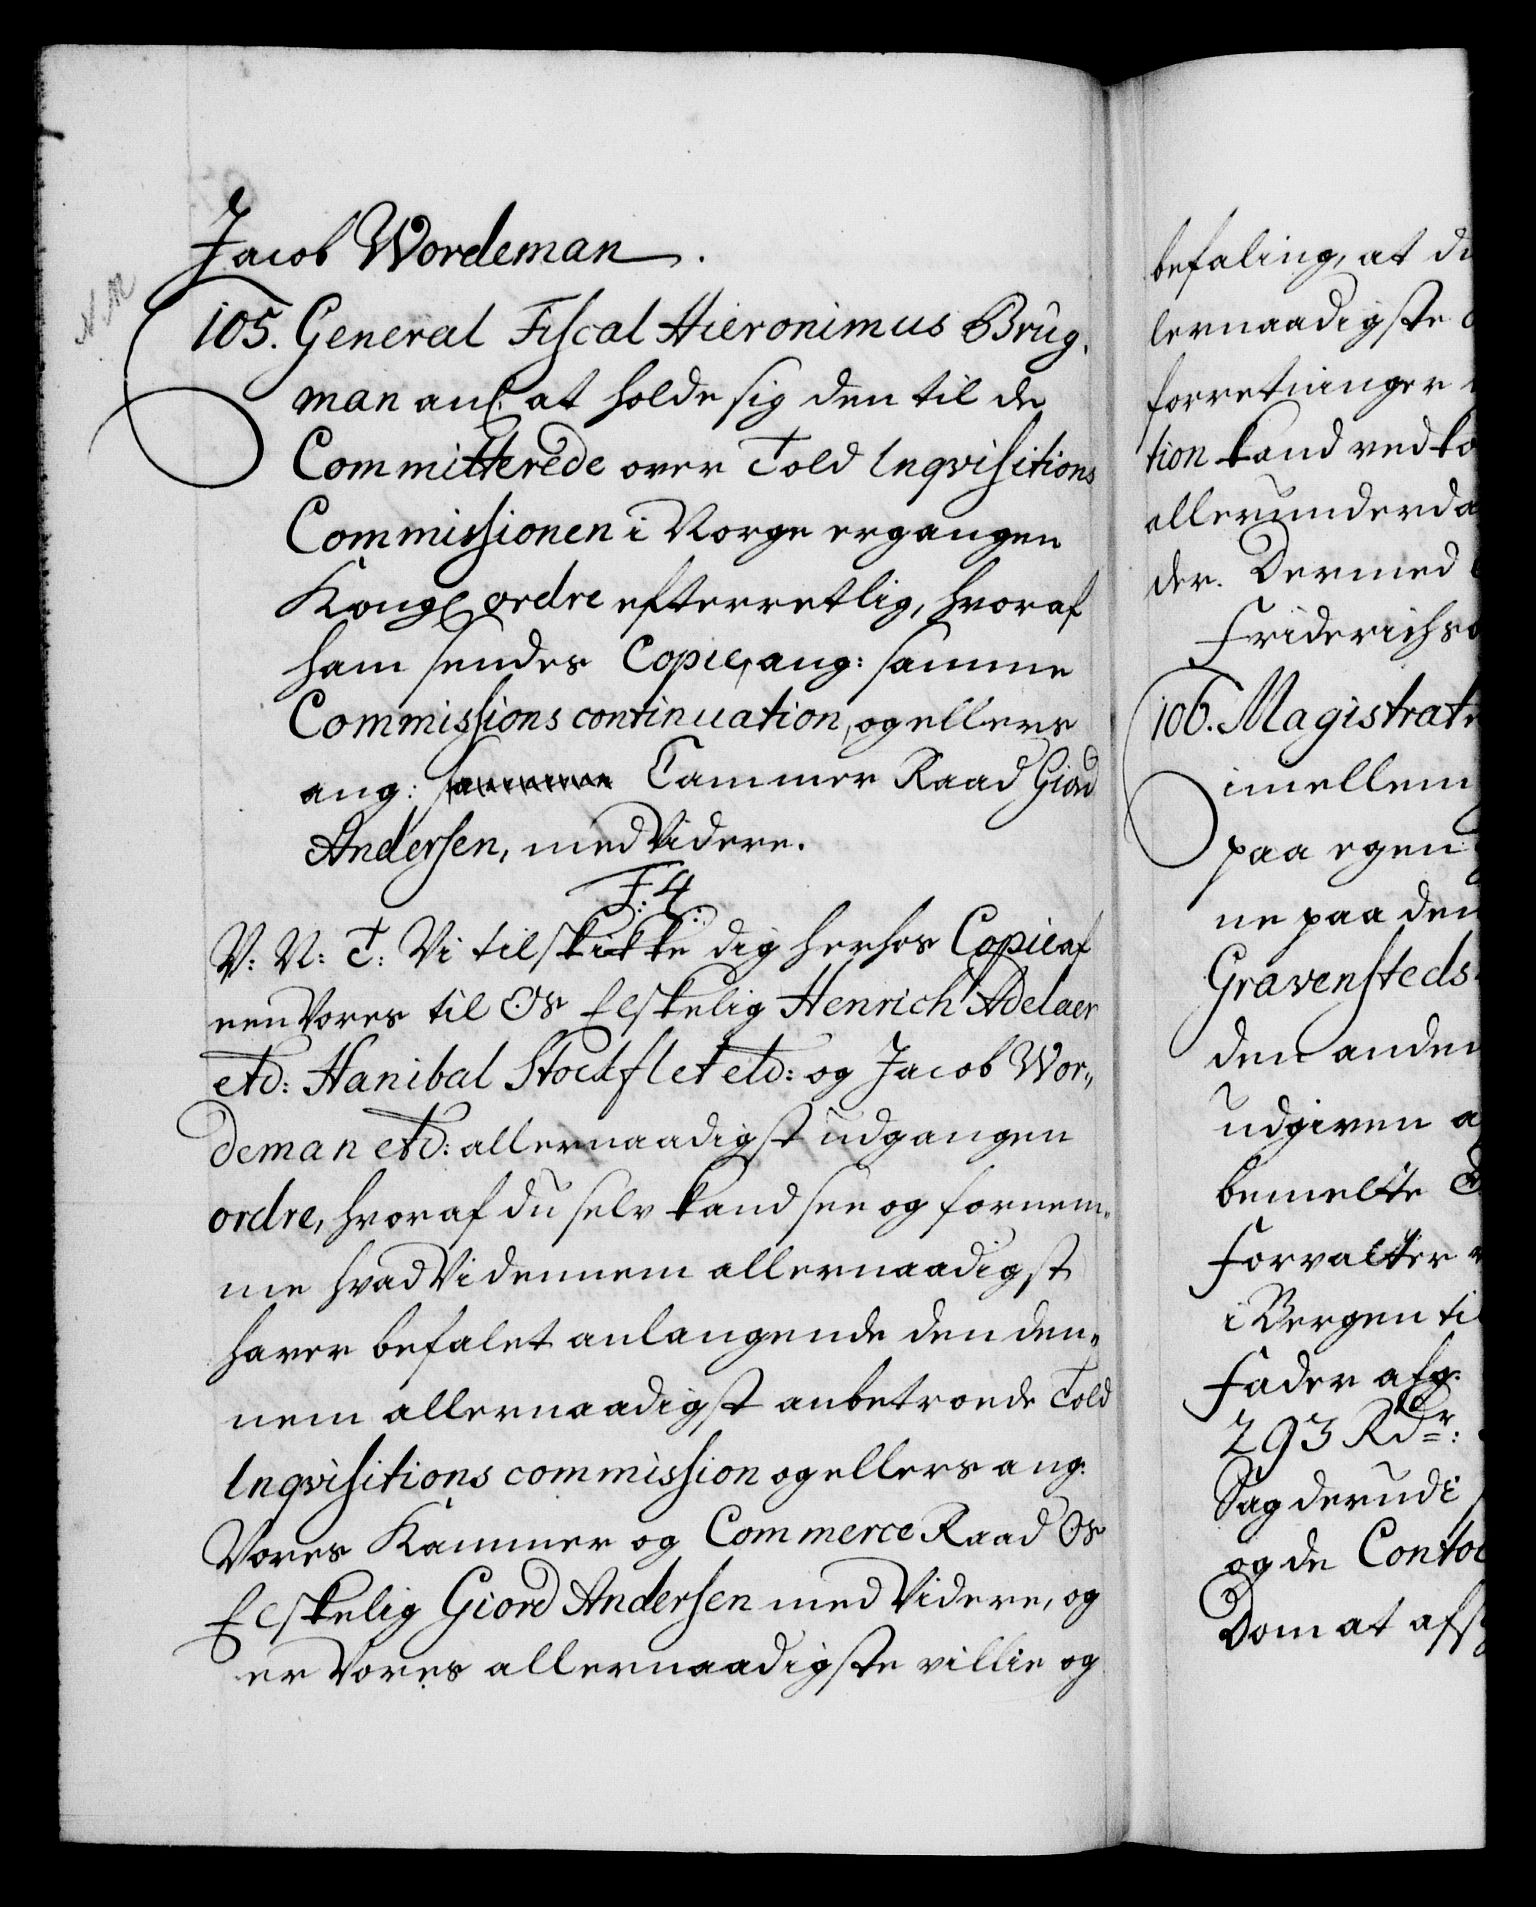 Jacob Wordeman.
N M
105. General Fiscal Hieronimus Brüg-
man anl. at holde sig den til de
Committerede over Told Inqvisitions
Commissionen i Norge ergangen
Kongl ordre efterretlig, hvoraf
ham sendes Copie, ang: samme
Commissions continuation, og ellers
ang: samme Cammer Raad Giord
Andersen, med Videre.
F: 4.
V: N: T: Vi tilskikke dig herhos Copie af
een Vores til Os Elskelig Henrich Adelaer
etc: Hanibal Stockflet etc: og Jacob Wor„
deman etc: allernaadigst udgangen
ordre, hvoraf du selv kand see og fornem-
me hvad Vi dennem allernaadigst
haver befalet anlangende den den„
nem allernaadigst anbetroede Told
Inqvisitions commission og ellers ang:
Vores Kammer og Commerce Raad Os
Elskelig Giord Andersen med Videre, og
er Vores allernaadigste villie og
befaling, at du
lernaadigste
forretninger
tion kand vedko
allerunderda
der. Dermed
Friderichs
106. Magistrat
imellem
paa egen
ne paa den
Gravensteds
den anden
udgiven a
bemelte
Forvalter
i Bergen til
Fader afg:
293 Rdr:
Sag derudi
og de Conto
Dom at afs